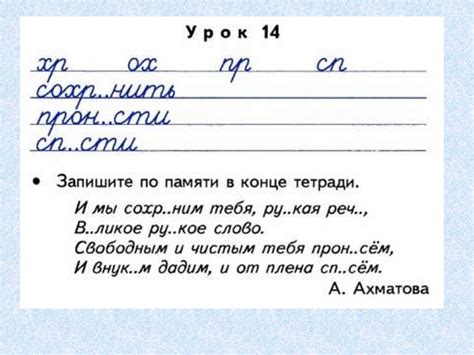 Урок 14
хр ох пр сп
сохр..нить
прон..сти
сп..сти
• Запишите по памяти в конце тетради.
И мы сохр..ним тебя, ру..кая реч..,
В..ликое ру..кое слово.
Свободным и чистым тебя прон..сём,
И внук..м дадим, и от плена сп..сём.
А. Ахматова